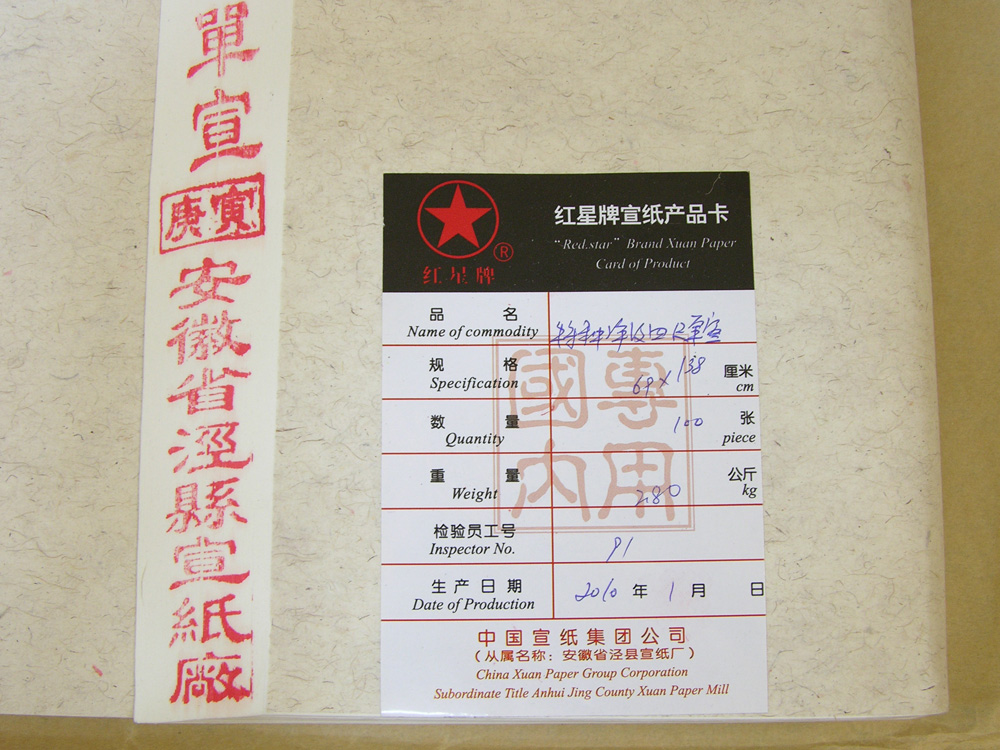 單宣
庚寅
安徽省涇縣宣紙廠
红星牌
®
红星牌宣纸产品卡
“Red.star” Brand Xuan Paper
Card of Product
品 名
Name of commodity
特种净皮四尺单宣
规 格
Specification
69×138 厘米
cm
数 量
Quantity
100 张
piece
重 量
Weight
2.80 公斤
kg
國內專用
检验员工号
Inspector No.
91
生产日期
Date of Production
2010 年 1 月 日
中国宣纸集团公司
（从属名称：安徽省泾县宣纸厂）
China Xuan Paper Group Corporation
Subordinate Title Anhui Jing County Xuan Paper Mill